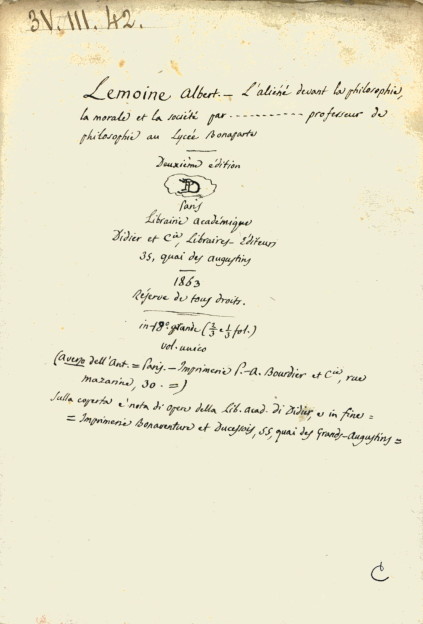 3V. III. 42.
Lemoine Albert. — L'aliéné devant la philosophie,
la morale et la société par ---------- professeur de
philosophie au Lycée Bonaparte
Deuxième édition
D
Paris
Librairie académique
Didier et Cie, Libraires-Editeurs
35, quai des Augustins
1863
Réserve de tous droits.
in-18º grande (2/3 e 1/3 fol.)
vol. unico
(averso dell'Ant. = Paris. — Imprimerie P.-A. Bourdier et Cie, rue
mazarine, 30. =)
Sulla coperta è nota di opere della Lib. Acad. di Didier, e in fine =
= Imprimerie Bonaventure et Ducessois, 55, quai des Grands-Augustins =